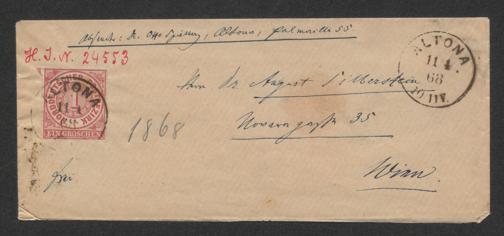 Absender: Dr. Otto Speckter, Altona, Palmaille 55
H. I. N. 24553
ALTONA.
11 4
68
10-11V.
NORDDEUTSCHER POSTBEZIRK
1
EIN GROSCHEN
ALTONA
11 4
Herrn Dr. August Silberstein
1868
Novaragasse 35
frei
Wien